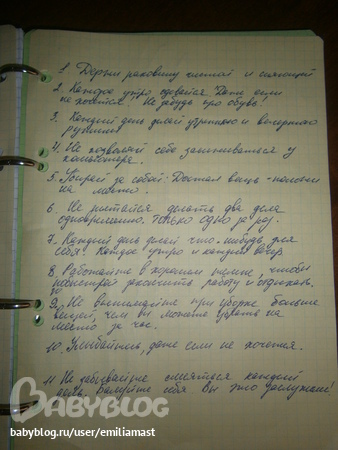 1. Держи раковину чистой и сияющей
2. Каждое утро одевайся. Даже если
не хочется. Не забудь про обувь!
3. Каждый день делай утреннюю и вечернюю
рутины
4. Не позволяй себе засиживаться у
компьютера.
5. Убирай за собой. Достал вещь - положи
на место.
6. Не пытайся делать два дела
одновременно. Только одно за раз.
7. Каждый день делай что-нибудь для
себя. Каждое утро и каждый вечер
8. Работайте в хорошем темпе, чтобы
рассчитать работу и отдыхать.
9. Не вынимайте при уборке больше
вещей, чем вы можете убрать на
место за час.
10. Улыбайтесь, даже если не хочется.
11. Не забывайте смеяться каждый
день. Балуйте себя. Вы это заслужили!
BABYBLOG
babyblog.ru/user/emiliamast